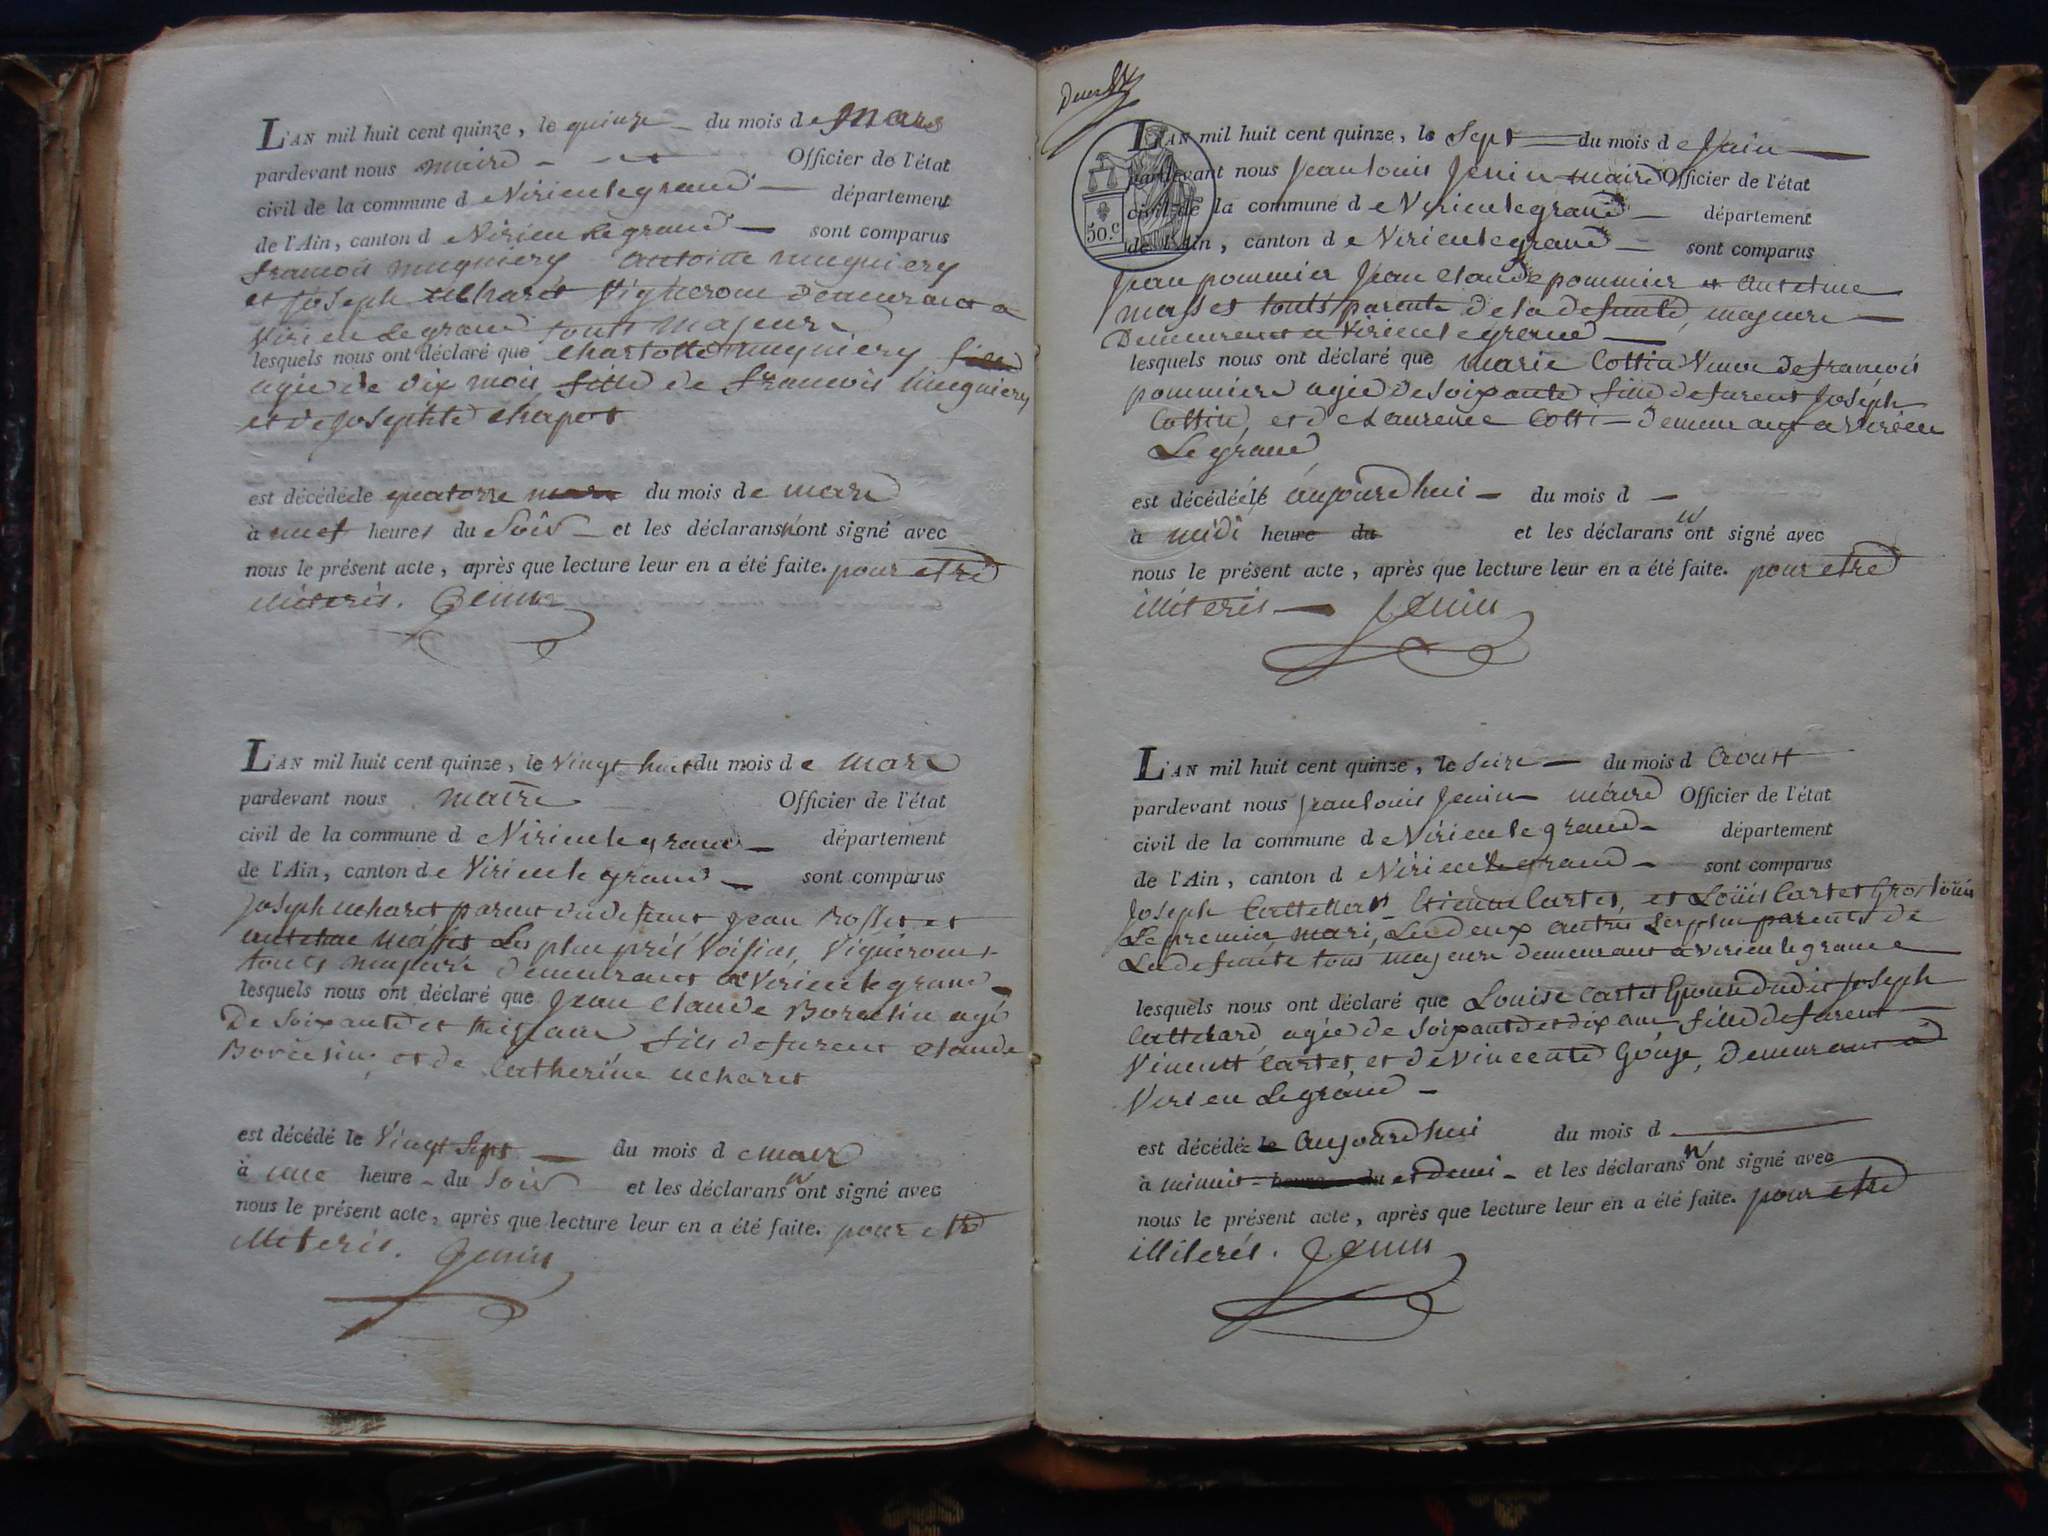 L'AN mil huit cent quinze, le quinze du mois de mars
pardevant nous maire Officier de l'état
civil de la commune de Virieu le grand département
de l'Ain, canton de Virieu Le grand sont comparus
françois mugniery antoine mugniery
et joseph ucharet Vigneron demeurant a
Virieu Le grand touts majeurs
lesquels nous ont déclaré que Charlotte mugniery
agée de dix mois fille de francois mugniery
et de josephte chapot
est décédée le quatorze du mois de mars
à neuf heures du Soir et les déclarans n'ont signé avec
nous le présent acte, après que lecture leur en a été faite. pour etre
illiterés. Jenin
L'AN mil huit cent quinze, le Vingt huit du mois de mars
pardevant nous maire Officier de l'état
civil de la commune de Virieu le grand département
de l'Ain, canton de Virieu le grand sont comparus
joseph ucharet parent du defunt jean Rosset et
antelme masset Les plus prés Voisins, Vignerons
touts majeurs demeurants a Virieu le grand
lesquels nous ont déclaré que Jean Claude Borcelin agé
De Soixante et trois ans fils de furent Claude
Borcelin, et de Catherine ucharet
est décédé le Vingt Sept du mois de mars
à une heure du Soir et les déclarans n'ont signé avec
nous le présent acte, après que lecture leur en a été faite. pour etre
illiterés. Jenin
L'AN mil huit cent quinze, le Sept du mois de Juin
pardevant nous Jean louis Jenin maire Officier de l'état
civil de la commune de Virieu le grand département
50.c
de l'Ain, canton de Virieu le grand sont comparus
Jean pommier Jean Claude pommier et antelme
masset touts parents de la defunte, majeurs
Demeurents a Virieu le grand
lesquels nous ont déclaré que marie Cottin Veuve de françois
pommier agée de soixante fille de furent Joséph
Cottin, et de Laurence Cotti demeurant a Virieu
Le grand
est décédée le aujourdhui du mois d
à midi heure du et les déclarans n'ont signé avec
nous le présent acte, après que lecture leur en a été faite. pour etre
illiterés Jenin
L'AN mil huit cent quinze, le Seize du mois d aoust
pardevant nous Jean louis Jenin maire Officier de l'état
civil de la commune de Virieu le grand département
de l'Ain, canton de Virieu le grand sont comparus
Joseph Etienne Cartet, et Louis Cartet Gros louis
Le premier mari, Les deux autres Les plus parents de
La defunte tous majeurs demeurant a Virieu le grand
lesquels nous ont déclaré que Louise Cartet Epouse dudit Joseph
agée de Soixante et dix ans fille de furent
Vincent Cartet, et de Vincente Gouje, demeurant a
Virieu Le grand
est décédée le aujourdhui du mois d
à minuit heure du et demi et les déclarans n'ont signé avec
nous le présent acte, après que lecture leur en a été faite. pour etre
illiterés. Jenin